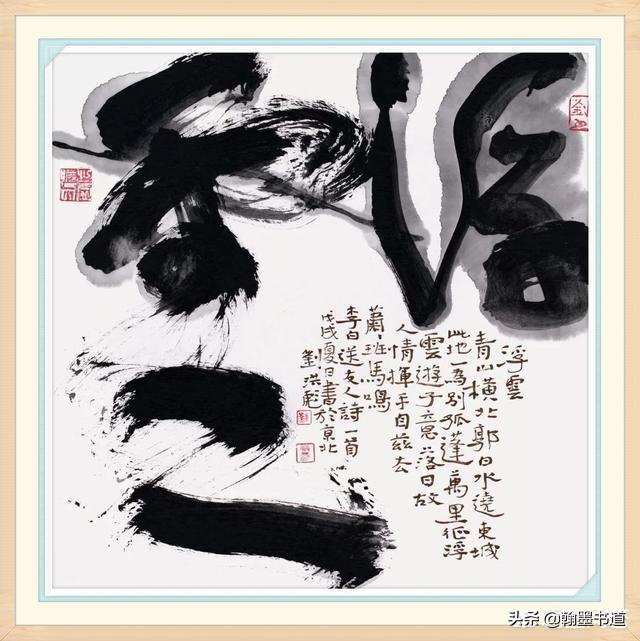 浮雲
青山橫北郭白水遶東城
此地一為別孤蓬萬里征浮
雲遊子意落日故
人情揮手自茲去
蕭、班馬鳴
李白送友人詩一首
戊戌夏日書於京北
劉洪彪
头条 @翰墨书道